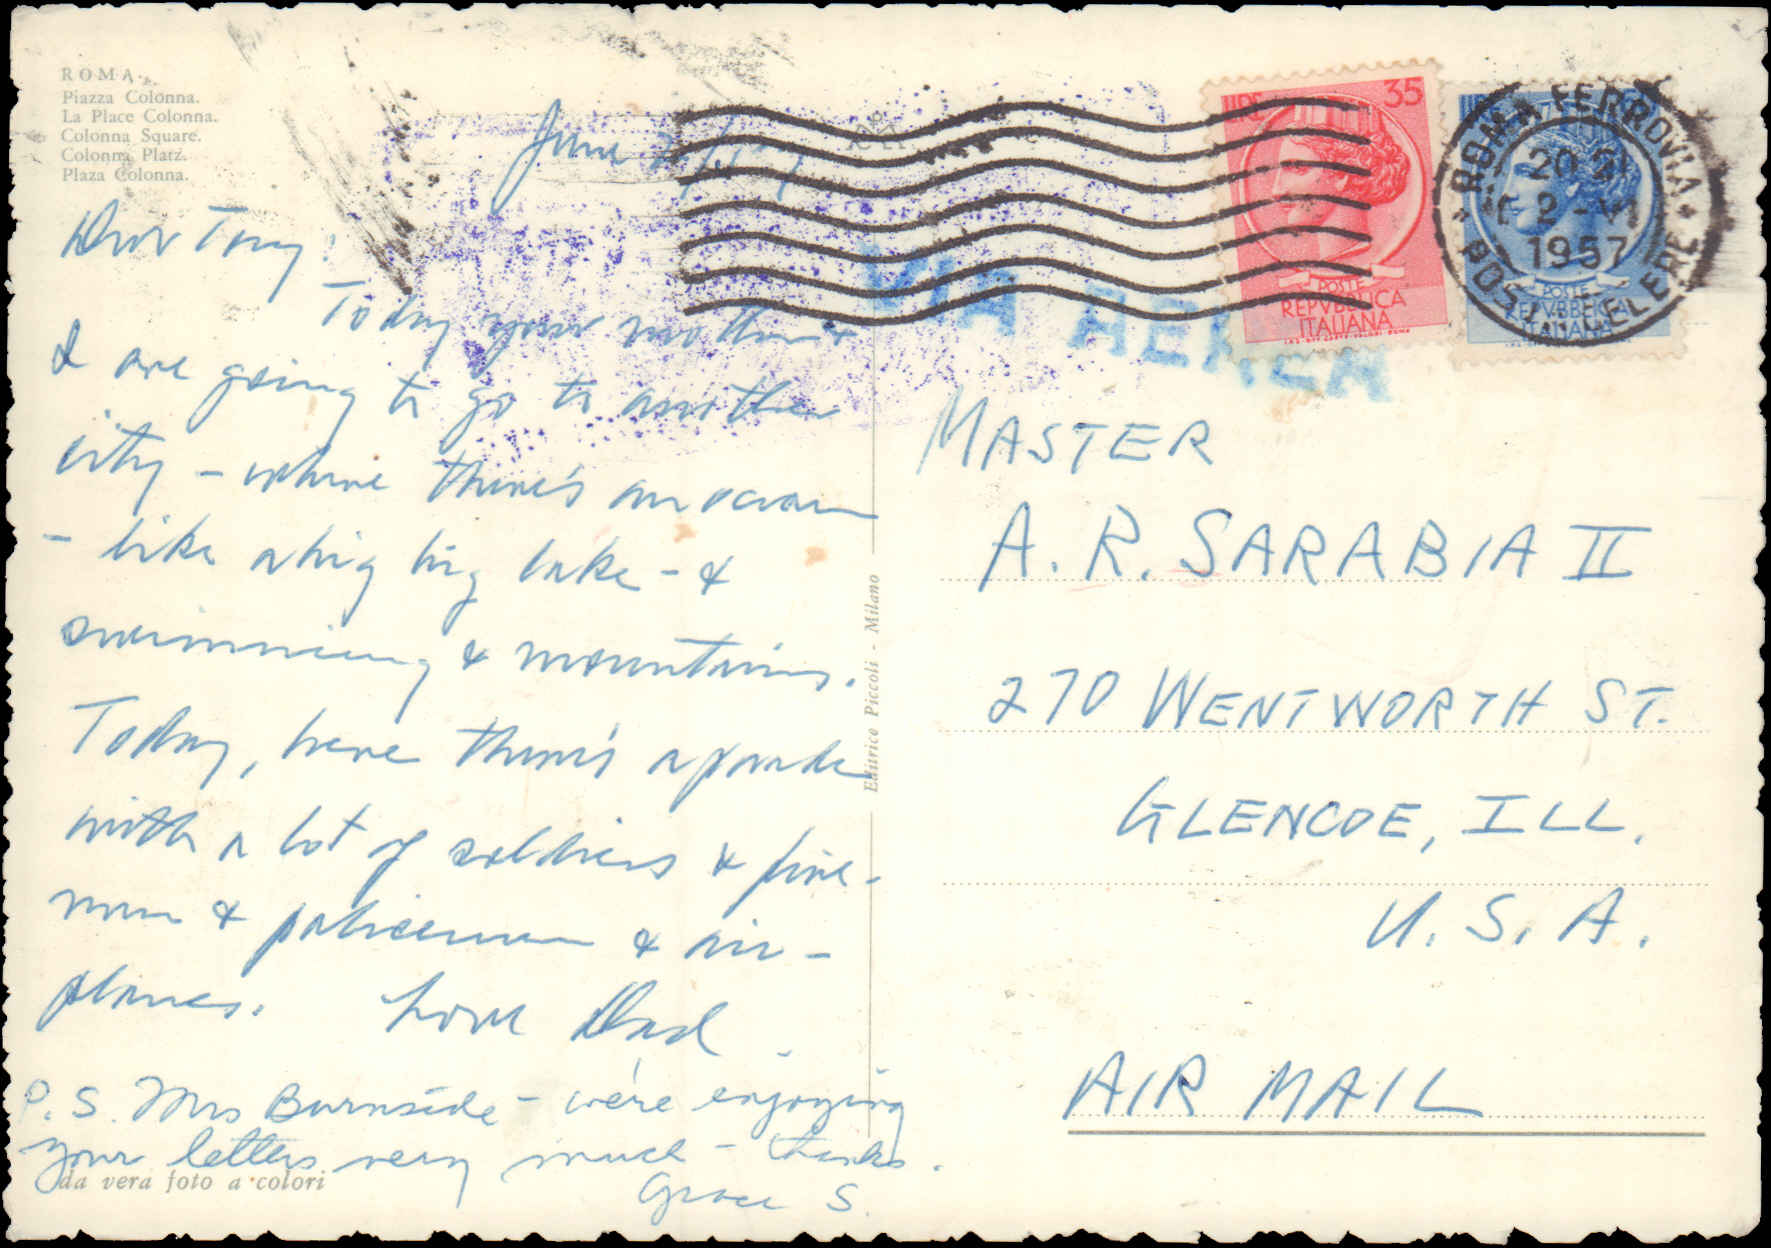 ROMA.
Piazza Colonna.
La Place Colonna.
Colonna Square.
Colonna Platz.
Plaza Colonna.
June 2,
Dear Tony,
Today your mother &
I are going to go to another
city – where there's an ocean
– like a big big lake – &
swimming & mountains.
Today, here there's a parade
with a lot of soldiers & fire-
men & policemen & air-
planes. Love Dad.
P.S. Mrs Burnside – we're enjoying
your letters very much – thanks.
Grace S.
da vera foto a colori
Editrice Piccoli - Milano
LIRE 35
POSTE
REPVBBLICA
ITALIANA
POSTE
REPVBBLICA
ITALIANA
ROMA FERROVIA
20-21
2-VI
1957
POSTA CELERE
VIA AEREA
MASTER
A. R. SARABIA II
270 WENTWORTH ST.
GLENCOE, ILL.
U. S. A.
AIR MAIL